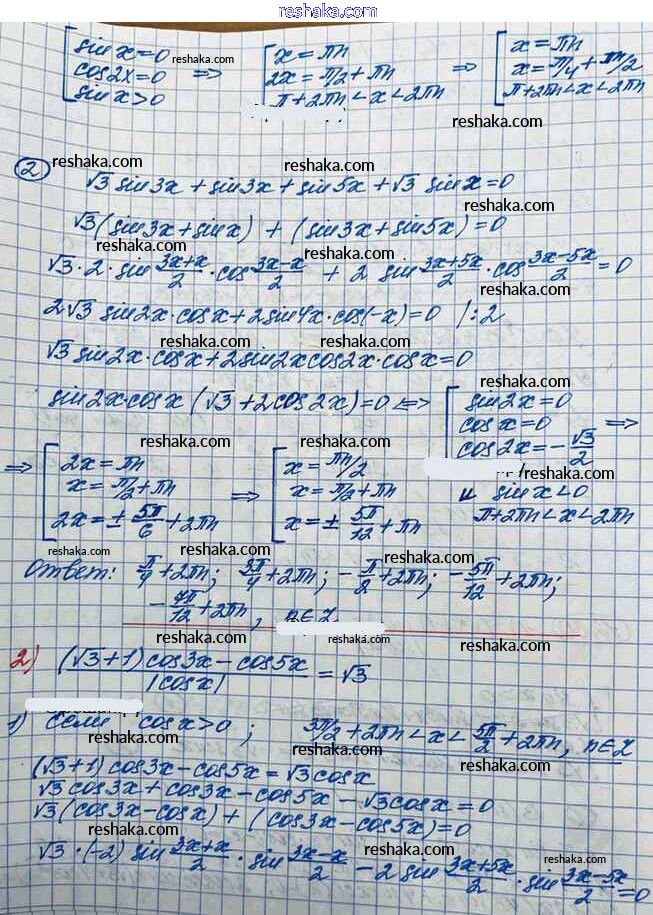 reshaka.com
[ sin x = 0
cos 2x = 0
sin x > 0
reshaka.com
=> [ x = πn
2x = π/2 + πn
π + 2πn < x < 2πn
reshaka.com
=> [ x = πn
x = π/4 + πn/2
π + 2πn < x < 2πn
reshaka.com
reshaka.com
② reshaka.com
reshaka.com
√3 sin 3x + sin 3x + sin 5x + √3 sin x = 0
reshaka.com
√3 (sin 3x + sin x) + (sin 3x + sin 5x) = 0
reshaka.com
reshaka.com
√3 · 2 · sin (3x+x)/2 · cos (3x-x)/2 + 2 sin (3x+5x)/2 · cos (3x-5x)/2 = 0
reshaka.com
2√3 sin 2x · cos x + 2 sin 4x · cos(-x) = 0 | : 2
reshaka.com reshaka.com
√3 sin 2x · cos x + 2 sin 2x cos 2x · cos x = 0
reshaka.com
sin 2x · cos x (√3 + 2 cos 2x) = 0 <=> [ sin 2x = 0
cos x = 0
cos 2x = -√3/2
=>
reshaka.com
reshaka.com reshaka.com
=> [ 2x = πn
x = π/2 + πn
2x = ± 5π/6 + 2πn
=> [ x = πn/2
x = π/2 + πn
x = ± 5π/12 + πn
reshaka.com
и sin x < 0
π + 2πn < x < 2πn
reshaka.com
reshaka.com
reshaka.com
Ответ: π/4 + 2πn; 3π/4 + 2πn; -π/2 + 2πn; -5π/12 + 2πn;
-7π/12 + 2πn, n∈Z
reshaka.com
reshaka.com
reshaka.com
2) ((√3+1) cos 3x - cos 5x)/|cos x| = √3
reshaka.com
reshaka.com
1) Если cos x > 0; 3π/2 + 2πn < x < 5π/2 + 2πn, n∈Z
reshaka.com
reshaka.com
(√3+1) cos 3x - cos 5x = √3 cos x
reshaka.com
√3 cos 3x + cos 3x - cos 5x - √3 cos x = 0
√3 (cos 3x - cos x) + (cos 3x - cos 5x) = 0
reshaka.com
reshaka.com
√3 · (-2) sin (3x+x)/2 · sin (3x-x)/2 - 2 sin (3x+5x)/2 · sin (3x-5x)/2 = 0
reshaka.com
reshaka.com
reshaka.com